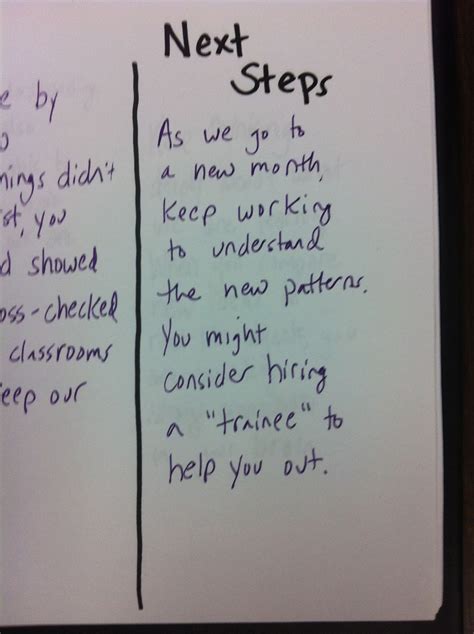 e by
o
nings didn't
st, you
d showed
oss-checked
classrooms
eep our
Next
Steps
As we go to
a new month,
keep working
to understand
the new patterns.
You might
consider hiring
a "trainee" to
help you out.